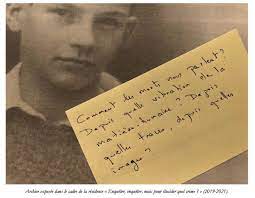 Comment les morts nous parlent?
Depuis quelle vibration de la
matière-humaine? Depuis
quelles traces, depuis quelles
images?
Archive exposée dans le cadre de la résidence « Enquêter, enquêter, mais pour élucider quel crime ? » (2019-2021).